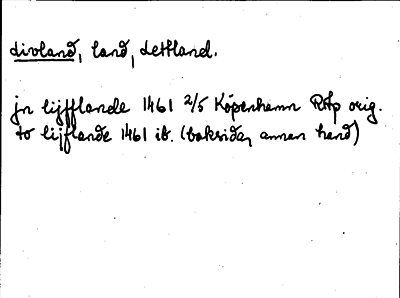 Livland, land, Lettland.
jn lijfflande 1461 2/5 Köpenhamn RAp orig.
to lijflande 1461 ib. (baksida, annan hand)